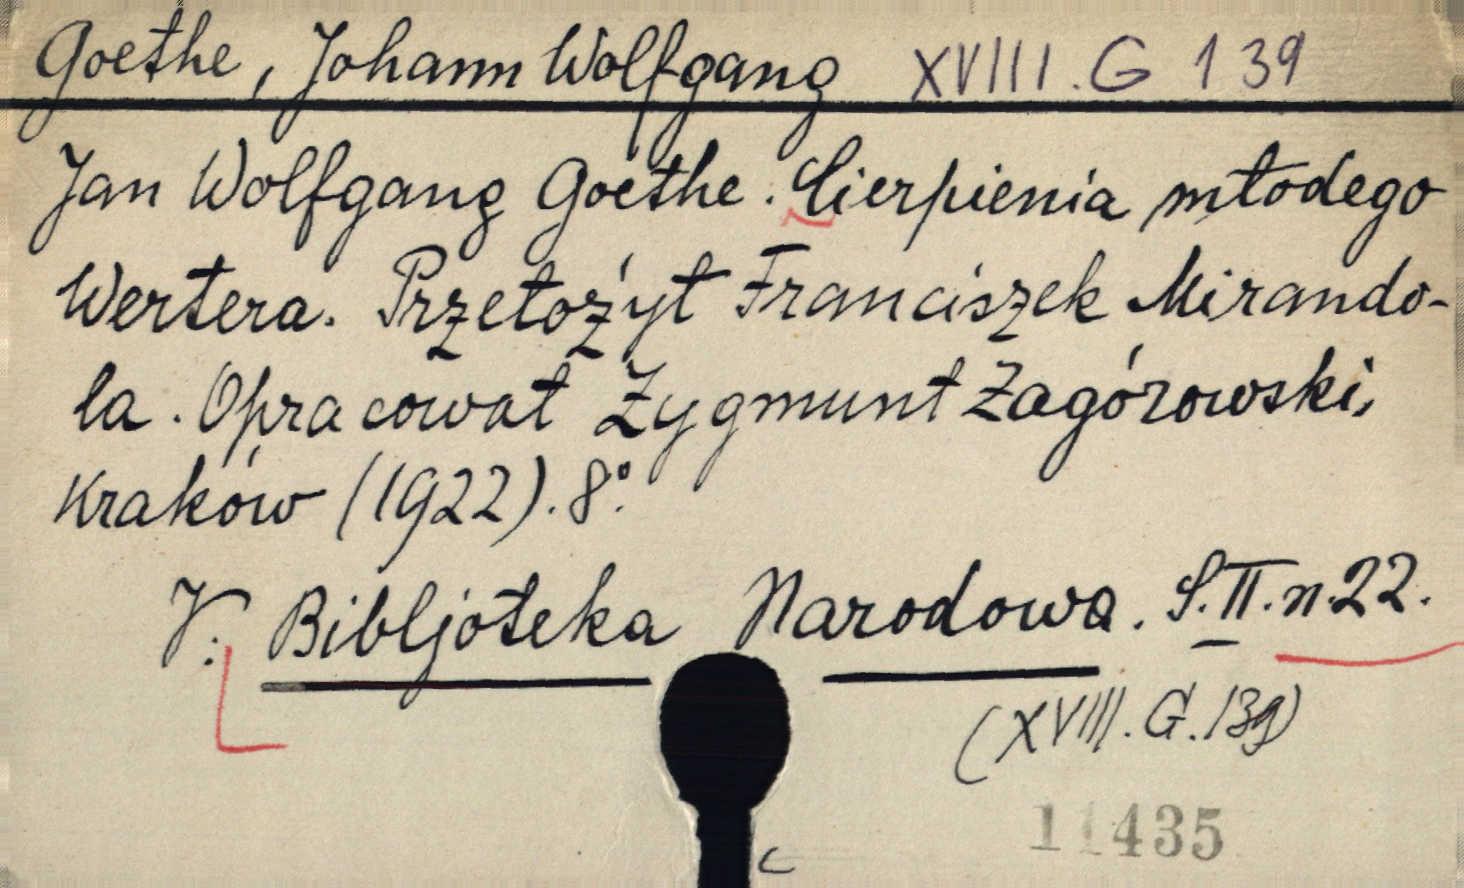 Goethe, Johann Wolfgang XVIII. G 139
Jan Wolfgang Goethe. Cierpienia młodego
Wertera. Przełożył Franciszek Mirando-
la. Opracował Zygmunt Zagórowski,
Kraków (1922). 8°.
V: Bibljoteka Narodowa. S. II. n. 22.
(XVIII. G. 139)
11435
c